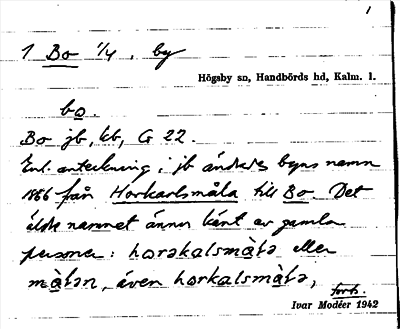 1
1 Bo 1/4, by
Högsby sn, Handbörds hd, Kalm. l.
bo.
Bo jb, kb, G 22.
Enl. anteckning i jb ändrades byns namn
1866 från Horkarlsmåla till Bo. Det
äldre namnet ännu känt av gamla
personer: horəkalsmàla eller
màlən, även horkalsmàla,
forts.
Ivar Modéer 1942